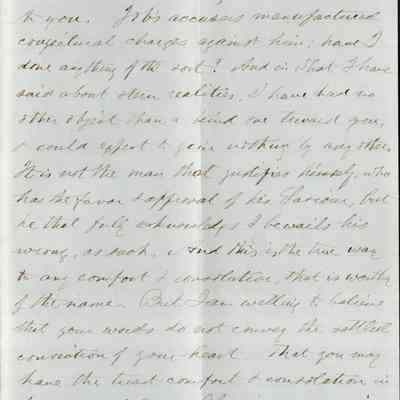 to you. Job's accusers manufactured
conjectural charges against him; have I
done anything of the sort? And in what I have
said about stern realities, I have had no
other object than a kind one toward you,
& could expect to gain nothing by any other.
It is not the man that justifies himself, who
has the favor & approval of his Saviour, but
he that fully acknowledges & bewails his
wrong, as such, and this is the true way
to any comfort & consolation, that is worthy
of the name. But I am willing to believe
that your words do not convey the settled
conviction of your heart. That you may
have the comfort & consolation in